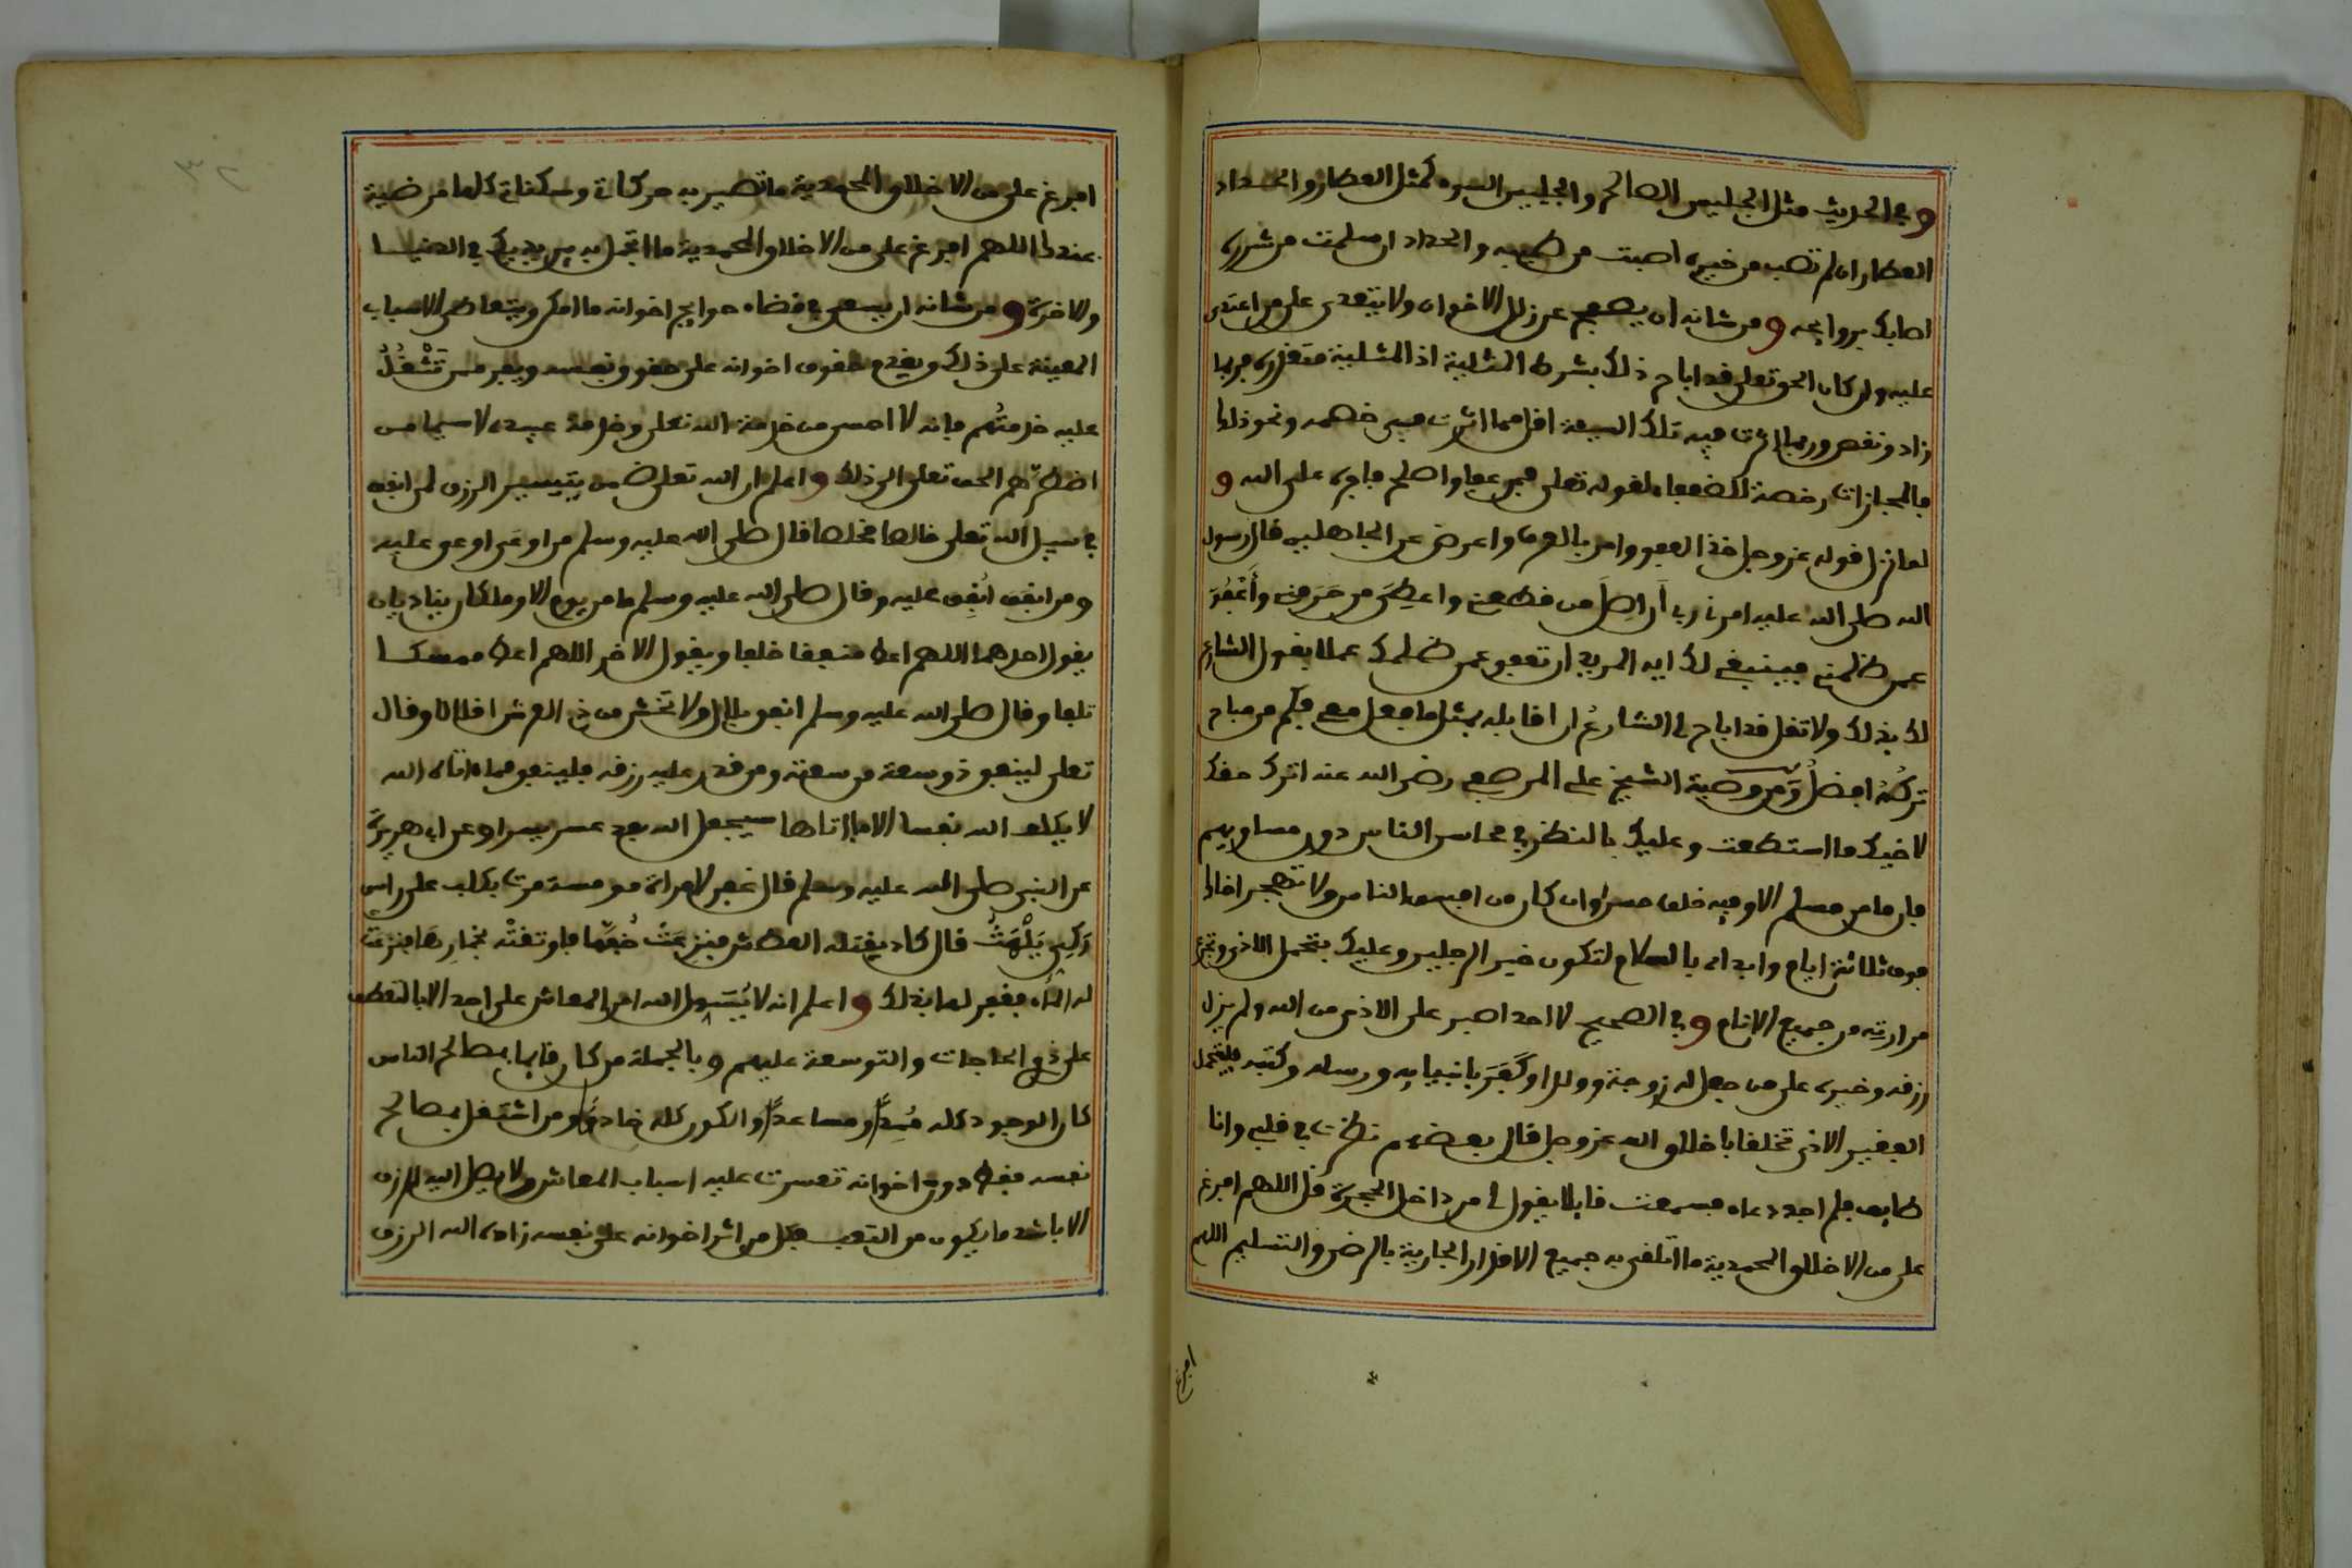 وفي الحديث مثل الجليس الصالح والجليس السوء كمثل العطار والحداد
العطار ان لم تصب من خيره اصبت من طيبه والحداد ان سلمت من شرره
اصابك بروايحه ومن شانه ان يصفح عن زلل الاخوان ولا يتعدى على من اعتدى
عليه ولو كان الحق تعلى قد اباح ذلك بشرط المثلية اذ المثلية متعذرة فربما
زاد ونقص وربما اثرت فيه تلك السيئة اقل مما اثرت في خصمه ونحو ذلك
فالمجازات رخصة للضعفاء لقوله تعلى فمن عفا واصلح فاجره على الله و
لما نزل قوله عز وجل خذ العفو وامر بالعرف واعرض عن الجاهلين قال رسول
الله صلى الله عليه امرني ربي أن اصل من قطعني واعطي من حرمني وأغفر
عمن ظلمني فينبغي لك ايه المريد ان تعفو عمن ظلمك عملا بقول الشارع
لك بذلك ولا تقل قد اباح لي الشارع ان اقابله بمثل ما فعل معي فكم من مباح
تركُهُ افضلُ ومن وصية الشيخ علي المرصفي رضي الله عنه اترك حقك
لاخيك ما استطعت وعليك بالنظر في محاسن الناس دون مساويهم
فان ما من مسلم الا وفيه خلق حسن وان كان من افسق الناس ولا تهجر اخاك
فوق ثلاثة ايام وابداه بالسلام لتكون خير الرجلين وعليك بتحمل الاذى وتجرع
مرارته من جميع الانام وفي الصحيح لا احد اصبر على الاذى من الله ولم يزل
رزقه وخيره على من جعل له زوجة وولدا وكَفَرَ بانبيايه ورسله وكتبه فليتحمل
الفقير الاذى تخلقا باخلاق الله عز وجل قال بعضهم نظرت في قلبي وانا
طايف فلم اجد دعاء فسمعت قايلا يقول لي من داخل الحجرة قل اللهم افرغ
علي من الاخلاق المحمدية ما اتلقى به جميع الاقدار الجارية بالرضى والتسليم اللهم
افرغ
افرغ علي من الاخلاق المحمدية ما تصير به حركاتي وسكناتي كلها مرضية
عندك اللهم افرغ علي من الاخلاق المحمدية ما اتجمل به بين يديك في الدنيا
والاخرة ومن شانه ان يسعى في قضاء حوايج اخوانه ما امكن ويتعاطى الاسباب
المعينة على ذلك ويقدم حقوق اخوانه على حقوق نفسه ويفر ممن تَشْغُلُ
عليه خدمتُهم فانه لا احسن من خدمة الله تعلى وخدمة عبيده لا سيما من
اضطرّهم الحق تعلى الى ذلك واعلم ان الله تعلى ضمن بتيسير الرزق لمن انفق
في سبيل الله تعلى خالصا مخلصا قال صلى الله عليه وسلم من اوعى اوعى عليه
ومن انفق اُنفِق عليه وقال صلى الله عليه وسلم ما من يوم الا وملكان يناديان
يقول احدهما اللهم اعط منفقا خلفا ويقول الاخر اللهم اعط ممسكا
تلفا وقال صلى الله عليه وسلم انفق بلال ولا تخش من ذي العرش اقلالا وقال
تعلى لينفق ذو سعة من سعته ومن قدر عليه رزقه فلينفق مما اتاه الله
لا يكلف الله نفسا الا ما اتاها سيجعل الله بعد عسر يسرا وعن ابي هريرة
عن النبي صلى الله عليه وسلم قال غفر لامراة مومسة مرت بكلب على راس
رَكِيٍّ يَلْهَثُ قال كاد يقتله العطش فنزعتْ خُفَّها فاوثقتْه بخمارِهَا فنزعت
له الماء فغفر لها بذلك واعلم انه لا يُسَهِّل الله امر المعاش على احد الا بالتعطف
على ذوي الحاجات والتوسعة عليهم وبالجملة من كان قايما بمصالح الناس
كان الوجود كله مُمِدًّا ومساعدًا والكون كله خادمًا ومن اشتغل بمصالح
نفسه فقط دون اخوانه تعسرت عليه اسباب المعاش ولا يصل اليه الرزق
الا باشد ما يكون من التعب فكل من اثر اخوانه على نفسه زاده الله الرزق